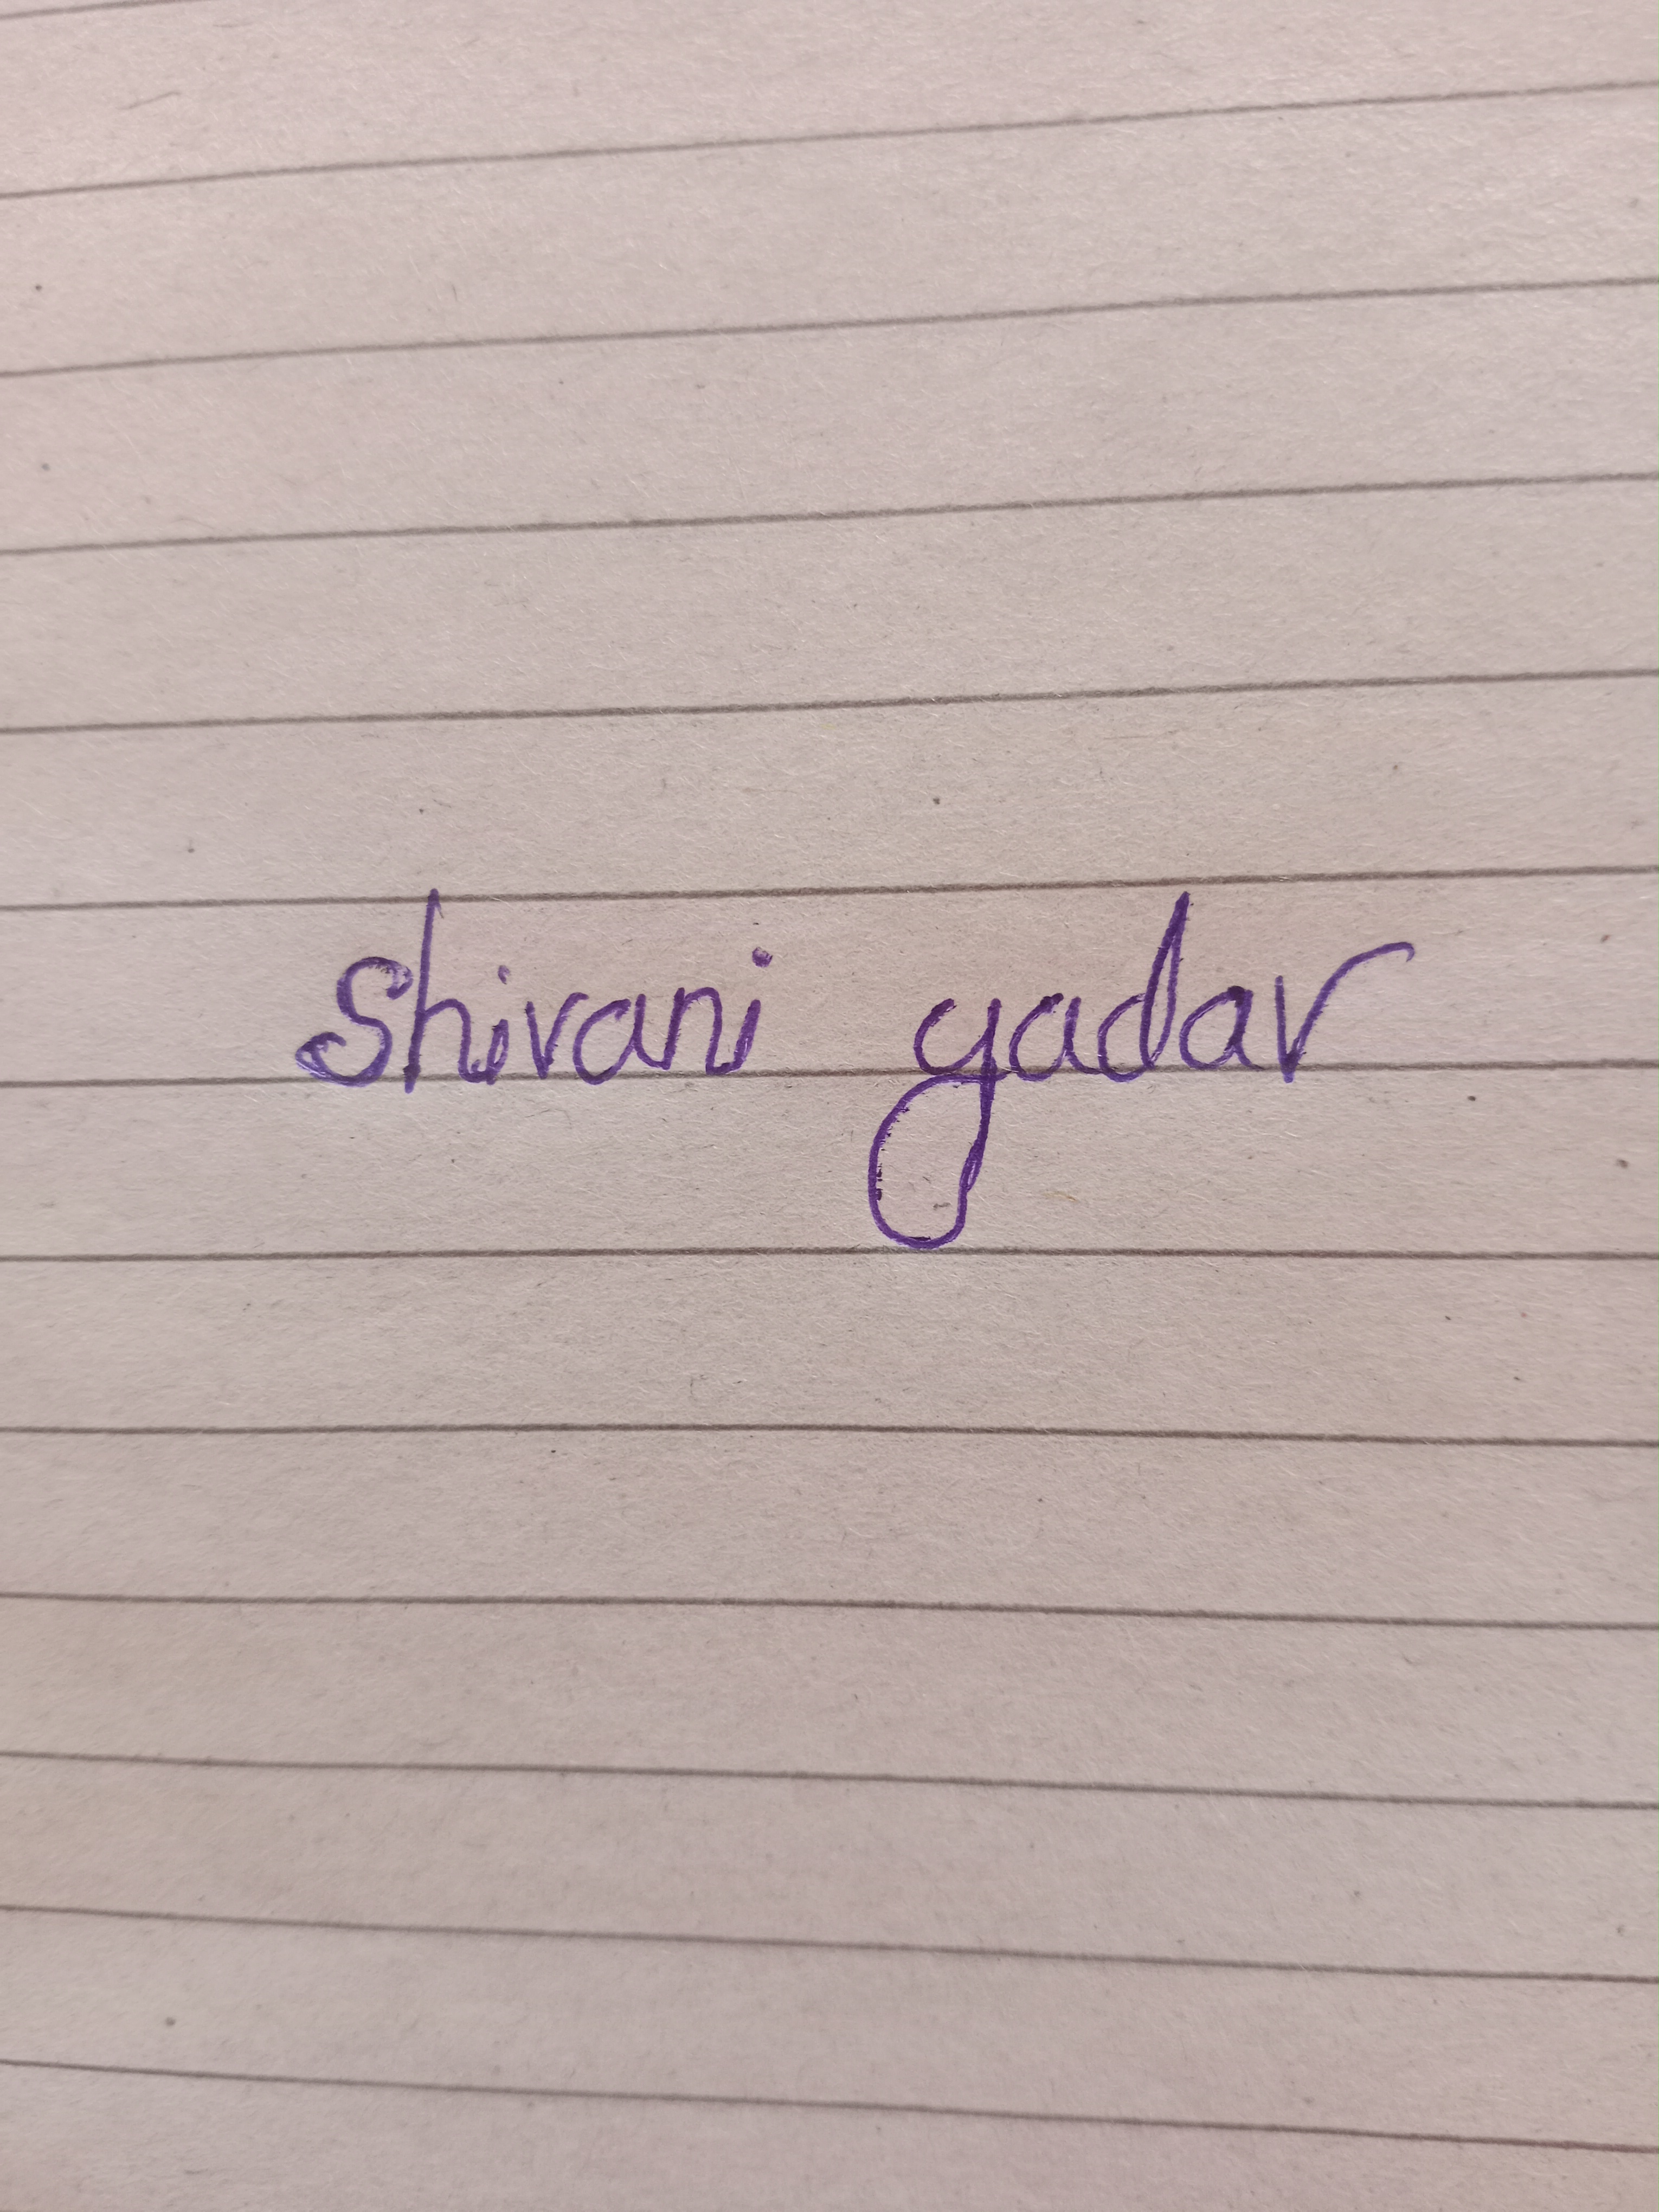 Shivani yadav